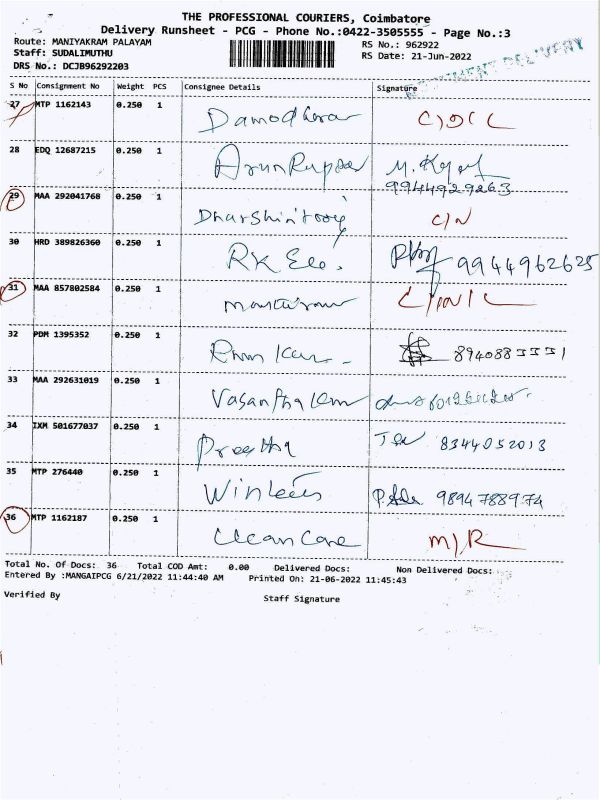 THE PROFESSIONAL COURIERS, Coimbatore
Delivery Runsheet - PCG - Phone No.:0422-3505555 - Page No.:3
Route: MANIYAKRAM PALAYAM
RS No.: 962922
Staff: SUDALIMUTHU
RS Date: 21-Jun-2022
DRS No.: DCJB96292203
DELIVERY
S No Consignment No Weight PCS Consignee Details Signature
27 MTP 1162143 0.250 1 Damodharar
28 EDQ 12687215 0.250 1
9944929263
29 MAA 292041768 0.250 1 C/N
30 HRD 389826360 0.250 1 RK Ele. 9944962625
31 MAA 857802584 0.250 1
32 PDM 1395352 0.250 1 Ram Kum
33 MAA 292631019 0.250 1 Vasantha Kum
34 IXM 501677037 0.250 1 Preetha 8344052013
35 MTP 276440 0.250 1 9894788974
36 MTP 1162187 0.250 1 Clean Care M/R
Total No. Of Docs: 36 Total COD Amt: 0.00 Delivered Docs: Non Delivered Docs:
Entered By :MANGAIPCG 6/21/2022 11:44:40 AM Printed On: 21-06-2022 11:45:43
Verified By Staff Signature